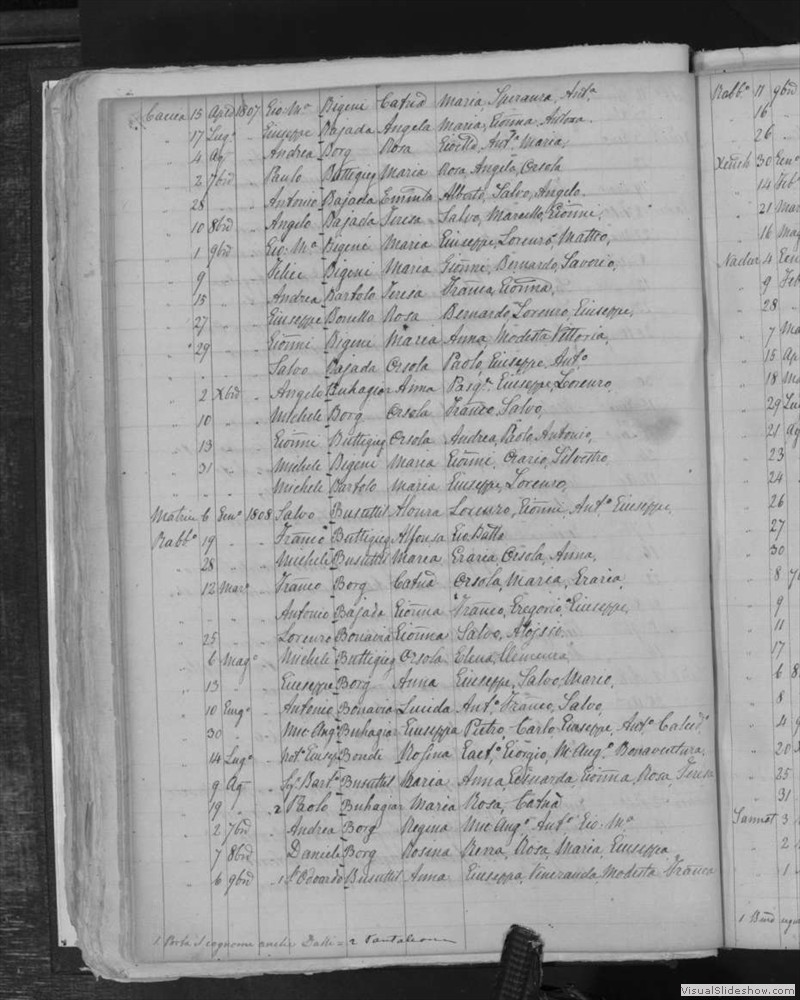 Caccia 15 Aple 1807 Gio: Mª Bigeni Catnd Maria, Speranza, Antª
" 17 Lugº " Giuseppe Bajada Angela Maria, Gionna, Antona
" 4 Ag " Andrea Borg Rosa Antª Maria,
" 2 7bre " Paulo Buttigieg Maria Rosa, Angela, Orsola
" 28 " " Antonio Bajada Alberto, Salvo, Angelo
" 10 8bre " Angelo Bajada Teresa Salvo, Marcello, Gionni,
" 1 9bre " Gio: Mª Bigeni Maria Giuseppe, Lorenzo, Matteo,
" 9 " " Felice Bigeni Maria Gionni, Bernardo, Saverio,
" 15 " " Andrea Bartolo Teresa Franca, Gionna,
" 27 " " Giuseppe Bonello Rosa Bernardo, Lorenzo, Giuseppe,
" 29 " " Gionni Bigeni Maria Anna, Modesta Vittoria,
Salvo Bajada Orsola Paolo, Giuseppe, Antº
" 2 Xbre " Angelo Buhagiar Anna Pasqe Giuseppe, Lorenzo
" 10 " " Michele Borg Orsola Franco, Salvo,
" 13 " " Gionni Buttigieg Orsola Andrea, Paolo, Antonio,
" 31 " " Michele Bigeni Maria Gionni, Orazio, Silvestro,
" " " Michele Bartolo Maria Giuseppe, Lorenzo,
Matrice 6 Genº 1808 Salvo Busuttil Lorenzo, Gionni, Antº Giuseppe,
Rabbº 19 " " Franco Buttigieg Alfonsa Gio Batta
" 28 " " Michele Busuttil Maria Grazia Orsola, Anna,
" 12 Marº " Franco Borg Catnª Orsola, Maria, Grazia,
" " " " Antonio Bajada Gionna Franco, Gregorio, Giuseppe,
" 25 " " Lorenzo Bonavia Gionna Salvo, Aloysio,
" 6 Magº " Michele Buttigieg Orsola Elena, Clemenza
" 13 " " Giuseppe Borg Anna Giuseppe, Salvo, Mario,
" 10 Giugº " Antonio Bonavia Lucida Antº Franco, Salvo,
" 30 " " Mic Angº Buhagiar Giuseppa Pietro, Carlo, Giuseppe, Antª
" 14 Lugº " Notº Giuse Bondi Rosina Gaetº Giorgio, M. Angº Bonaventura,
" 9 Ag " Sigr Bartº Busuttil Maria Anna, Gionna, Rosa, Teresa
" 19 " " 2 Paolo Buhagiar Maria Rosa, Catnª
" 2 7bre " Andrea Borg Regina Mic Angº Antº Gio: Mª
" 7 8bre " Daniele Borg Rosana Rosa, Maria, Giuseppa
" 6 9bre " 1 Odoardo Busuttil Anna Giuseppa, Veneranda, Modesta Franca
1 Porta il cognome anche = 2 Pantaleone
Rabbº 11 9bre
" 16
" 26
Xeuch 30 Genº
" 14 Febº
" 21 Mar
" 16 Mag
Nadur 4 Gen
" 9 Feb
" 28
" 7 Ma
" 15 Ap
" 18 Ma
" 29 Lu
" 21 Ag
" 23
" 24
" 26
" 27
" 30
" 8 7
" 9
" 11
" 17
" 6 8
" 8
" 4 9
" 20 X
" 25
" 31
Sannat 3
" 2
" 1
VisualSlideshow.com